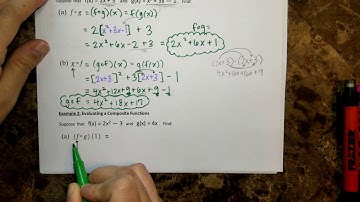 Suppose that f(x) = 2x + 3 and g(x) = x² + 3x − 1. Find:
(a) f∘g = (f∘g)(x) = f(g(x))
= 2[x²+3x-1] + 3
= 2x² + 6x - 2 + 3
f∘g =
2x² + 6x + 1
(b) g∘f = (g∘f)(x) = g(f(x))
= [2x+3]² + 3[2x+3] - 1
(2x+3)·(2x+3)
4x²+6x+6x+9
= 4x² + 12x + 9 + 6x + 9 - 1
g∘f = 4x² + 18x + 17
Example 2: Evaluating a Composite Functions
Suppose that f(x) = 2x² − 3 and g(x) = 4x. Find:
(a) (f∘g)(1) =